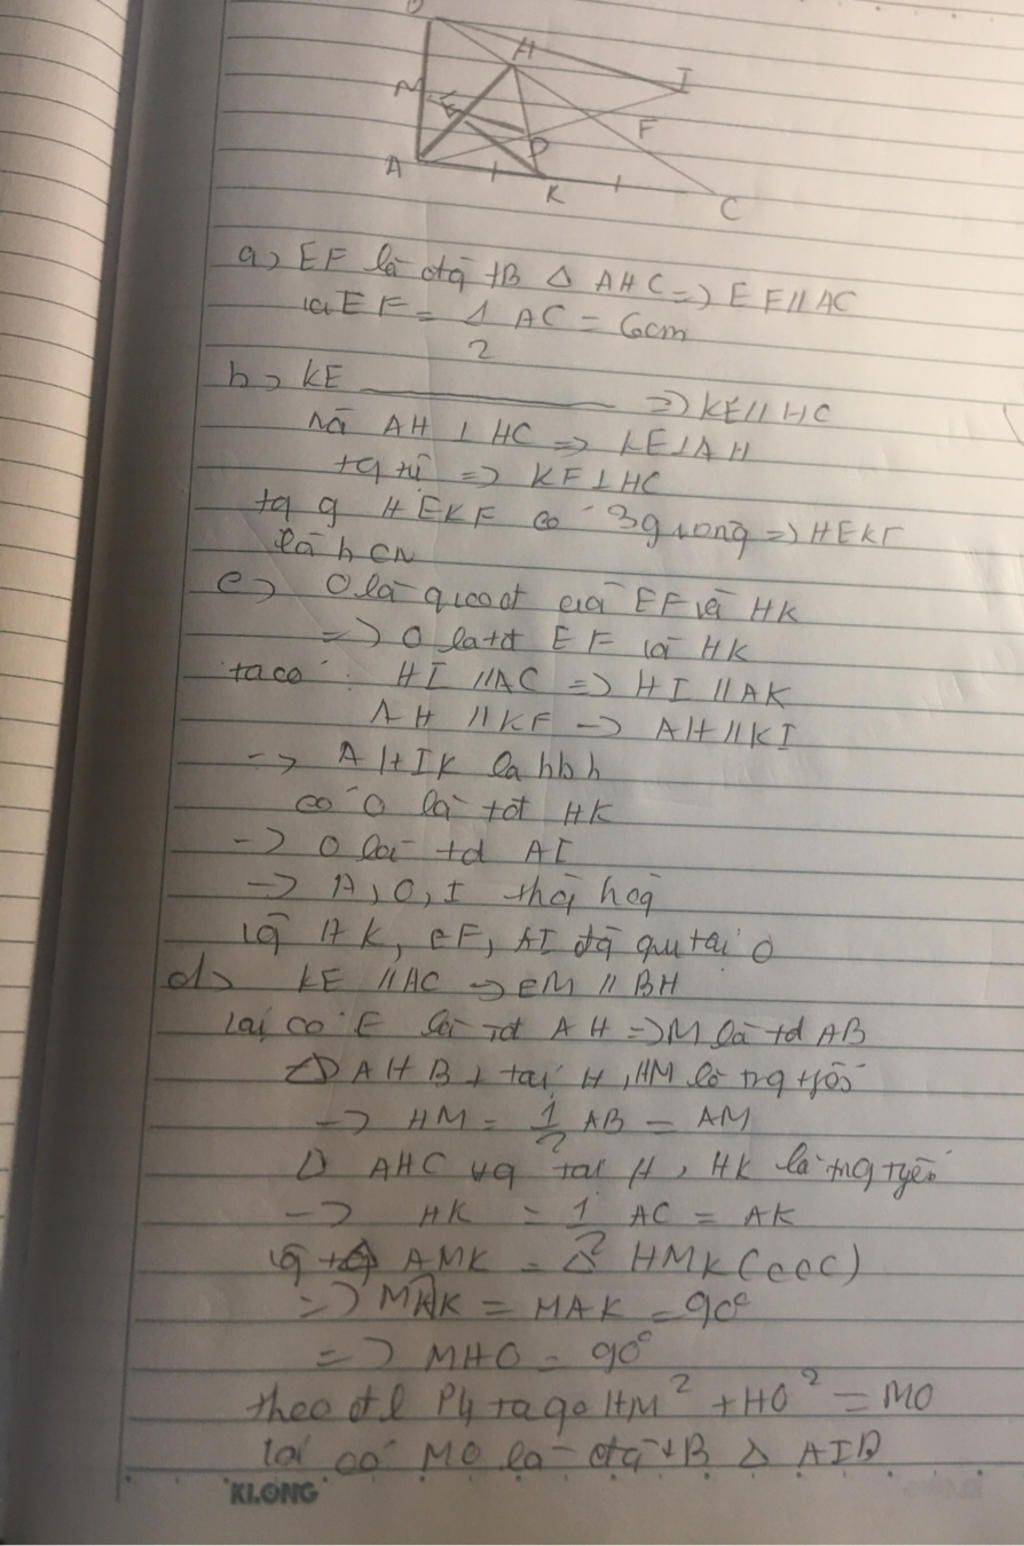 H
I
M
E
F
P
A
K
C
a, EF là đtg tB Δ AHC => EF // AC
và EF = 1/2 AC = 6cm
b, KE ________ => KE // HC
mà AH ⊥ HC => KE ⊥ AH
tg tự => KF ⊥ HC
tg g HEKF có 3g vuong => HEKF
là hcn
c, O là giao đ của EF và HK
=> O là tđ EF và HK
ta có : HI // AC => HI // AK
AH // KF -> AH // KI
-> AHIK là hbh
có O là tđ HK
-> O là td AI
-> A, O, I thg hàg
vậy HK, EF, AI đg quy tại O
d, KE // AC -> EM // BH
lại có E là tđ AH => M là td AB
Δ AHB ⊥ tại H, HM là trg tyến
-> HM = 1/2 AB = AM
Δ AHC vg tại H, HK là trg tyến
-> HK = 1/2 AC = AK
AMK = Δ HMK (ccc)
=> MHK = MAK = 90°
=> MHO = 90°
theo đl Pytago HM² + HO² = MO
lại có MO là đtg tB Δ AIB
KLONG